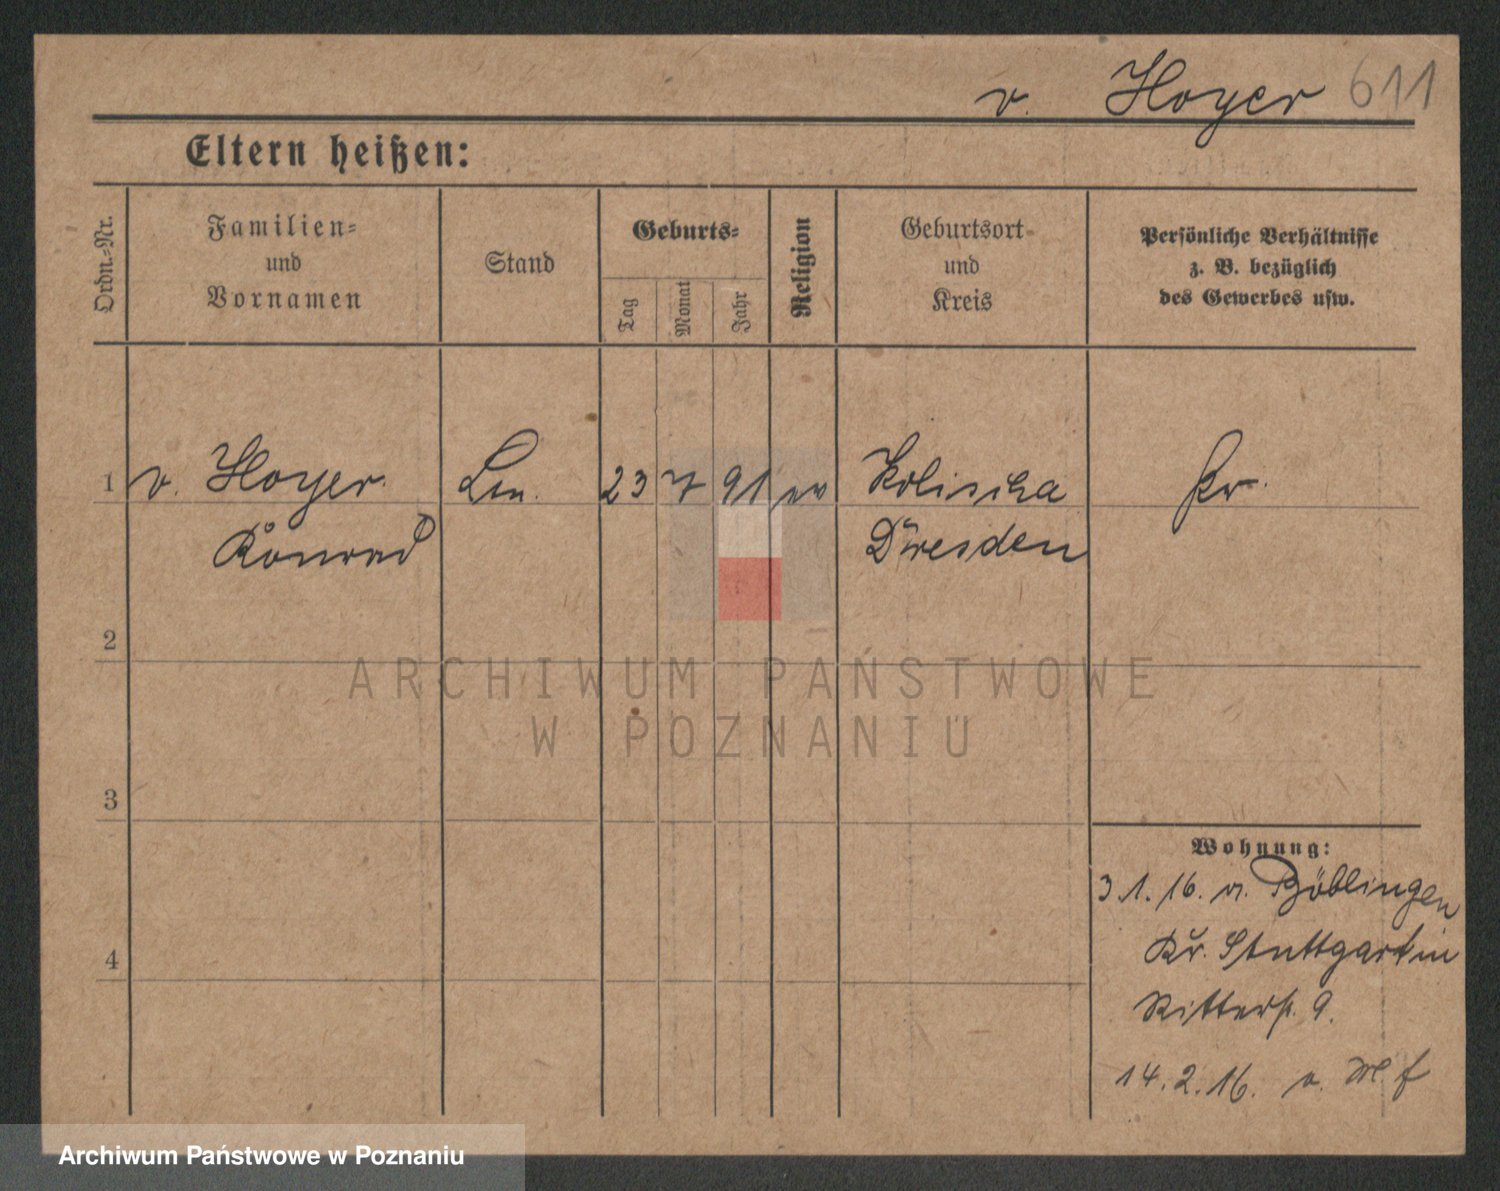 v. Hoyer 611
Eltern heißen:
Ordn.-Nr.
Familien-
und
Vornamen
Stand
Geburts-
Tag
Monat
Jahr
Religion
Geburtsort
und
Kreis
Persönliche Verhältnisse
z. B. bezüglich
des Gewerbes usw.
1 v. Hoyer 23 7 91 ev
Konrad Dresden
2
3
4
ARCHIWUM PAŃSTWOWE
W POZNANIU
Wohnung:
3.1.16. v. Böblingen
Kr. Stuttgart in
Ritterst. 9.
14.2.16.
Archiwum Państwowe w Poznaniu